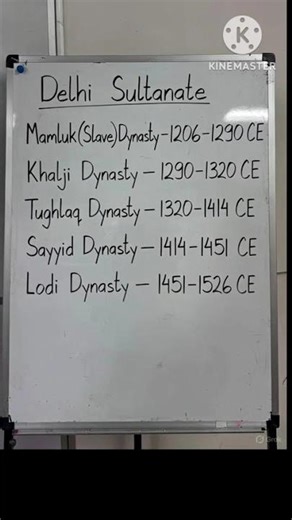 KINEMASTER
Delhi Sultanate
Mamluk(Slave)Dynasty-1206-1290 CE
Khalji Dynasty - 1290-1320 CE
Tughlaq Dynasty - 1320-1414 CE
Sayyid Dynasty - 1414-1451 CE
Lodi Dynasty - 1451-1526 CE